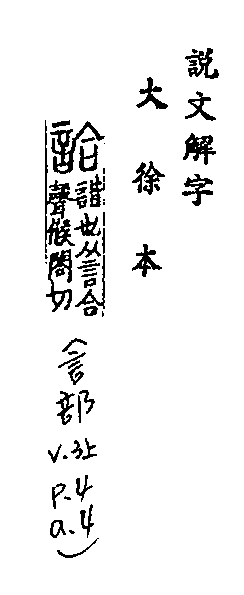 説文解字
大徐本
詥 諧也从言合
聲候閤切
(言部
v.3上
p.4
a.4)